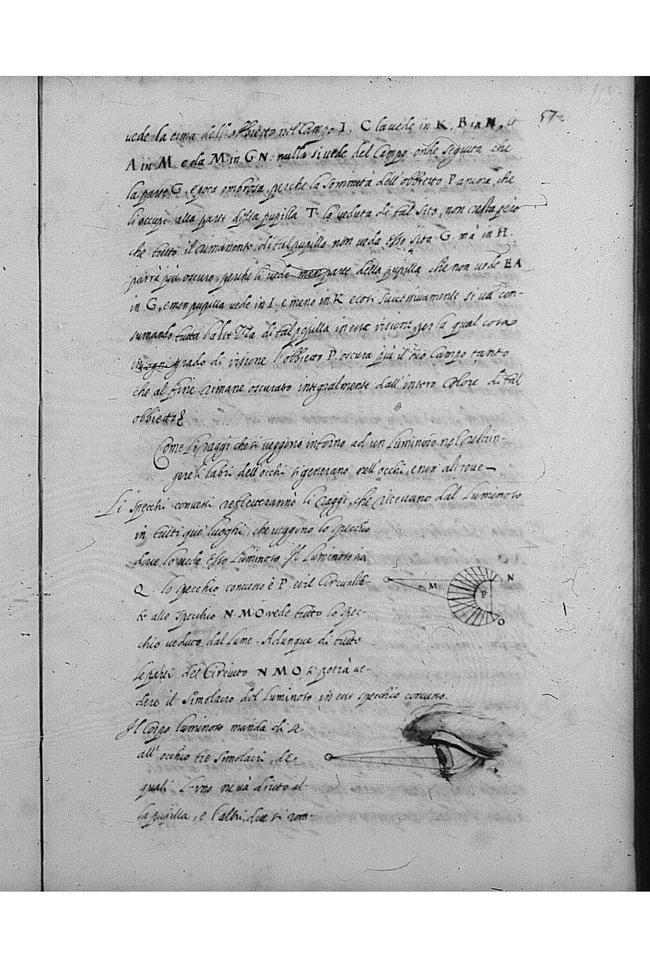 57
vede la cima dell'obbietto nel Campo I, C la vede in K, B in N, et
A in M e da M in G N. nulla si vede del Campo onde seguita che
la parte G, e poco ombrosa, perche la sommità dell'obbietto P ancora, che
li occupi alla parte della pupilla T. la veduta di tal sito, non resta però
che tutto il rimanente, di tal pupilla non veda esso sito G mà in H.
parrà più oscuro, perche li vede men parte della pupilla che non vede EA
in G, e men pupilla vede in I, e meno in K e così successivamente si va con-
sumando tutta l'altezza di tal pupilla in esse visioni, per la qual cosa
in ogni grado di visione l'obbietto P. oscura più il suo Campo tanto
che al fine rimane oscurato integralmente dall'intero colore di tal
obbietto
Come li raggi che si veggino intorno ad un Luminoso nel restrin-
gere i labri dell'occhi si generano nell'occhi, e non altroue
Li specchi conuessi refletteranno li raggi, che riceuano dal Luminoso
in tutti que' luoghi, che veggino lo specchio
doue lo uede esso Luminoso. Il Luminoso sia
Q. lo specchio conuesso è P. et il Circuali
te allo specchio N. M. O vede tutto lo spec-
chio veduto dal lume. Adunque di tutte
le parti del Circuito N M O si potrà ue-
dere il simolacro del Luminoso in esso specchio conuesso.
Il corpo luminoso manda di se
all'occhio tre simolacri, de
quali l'uno ne uà diritto al
la pupilla, e l'altri due si rom-
M
N
P
O